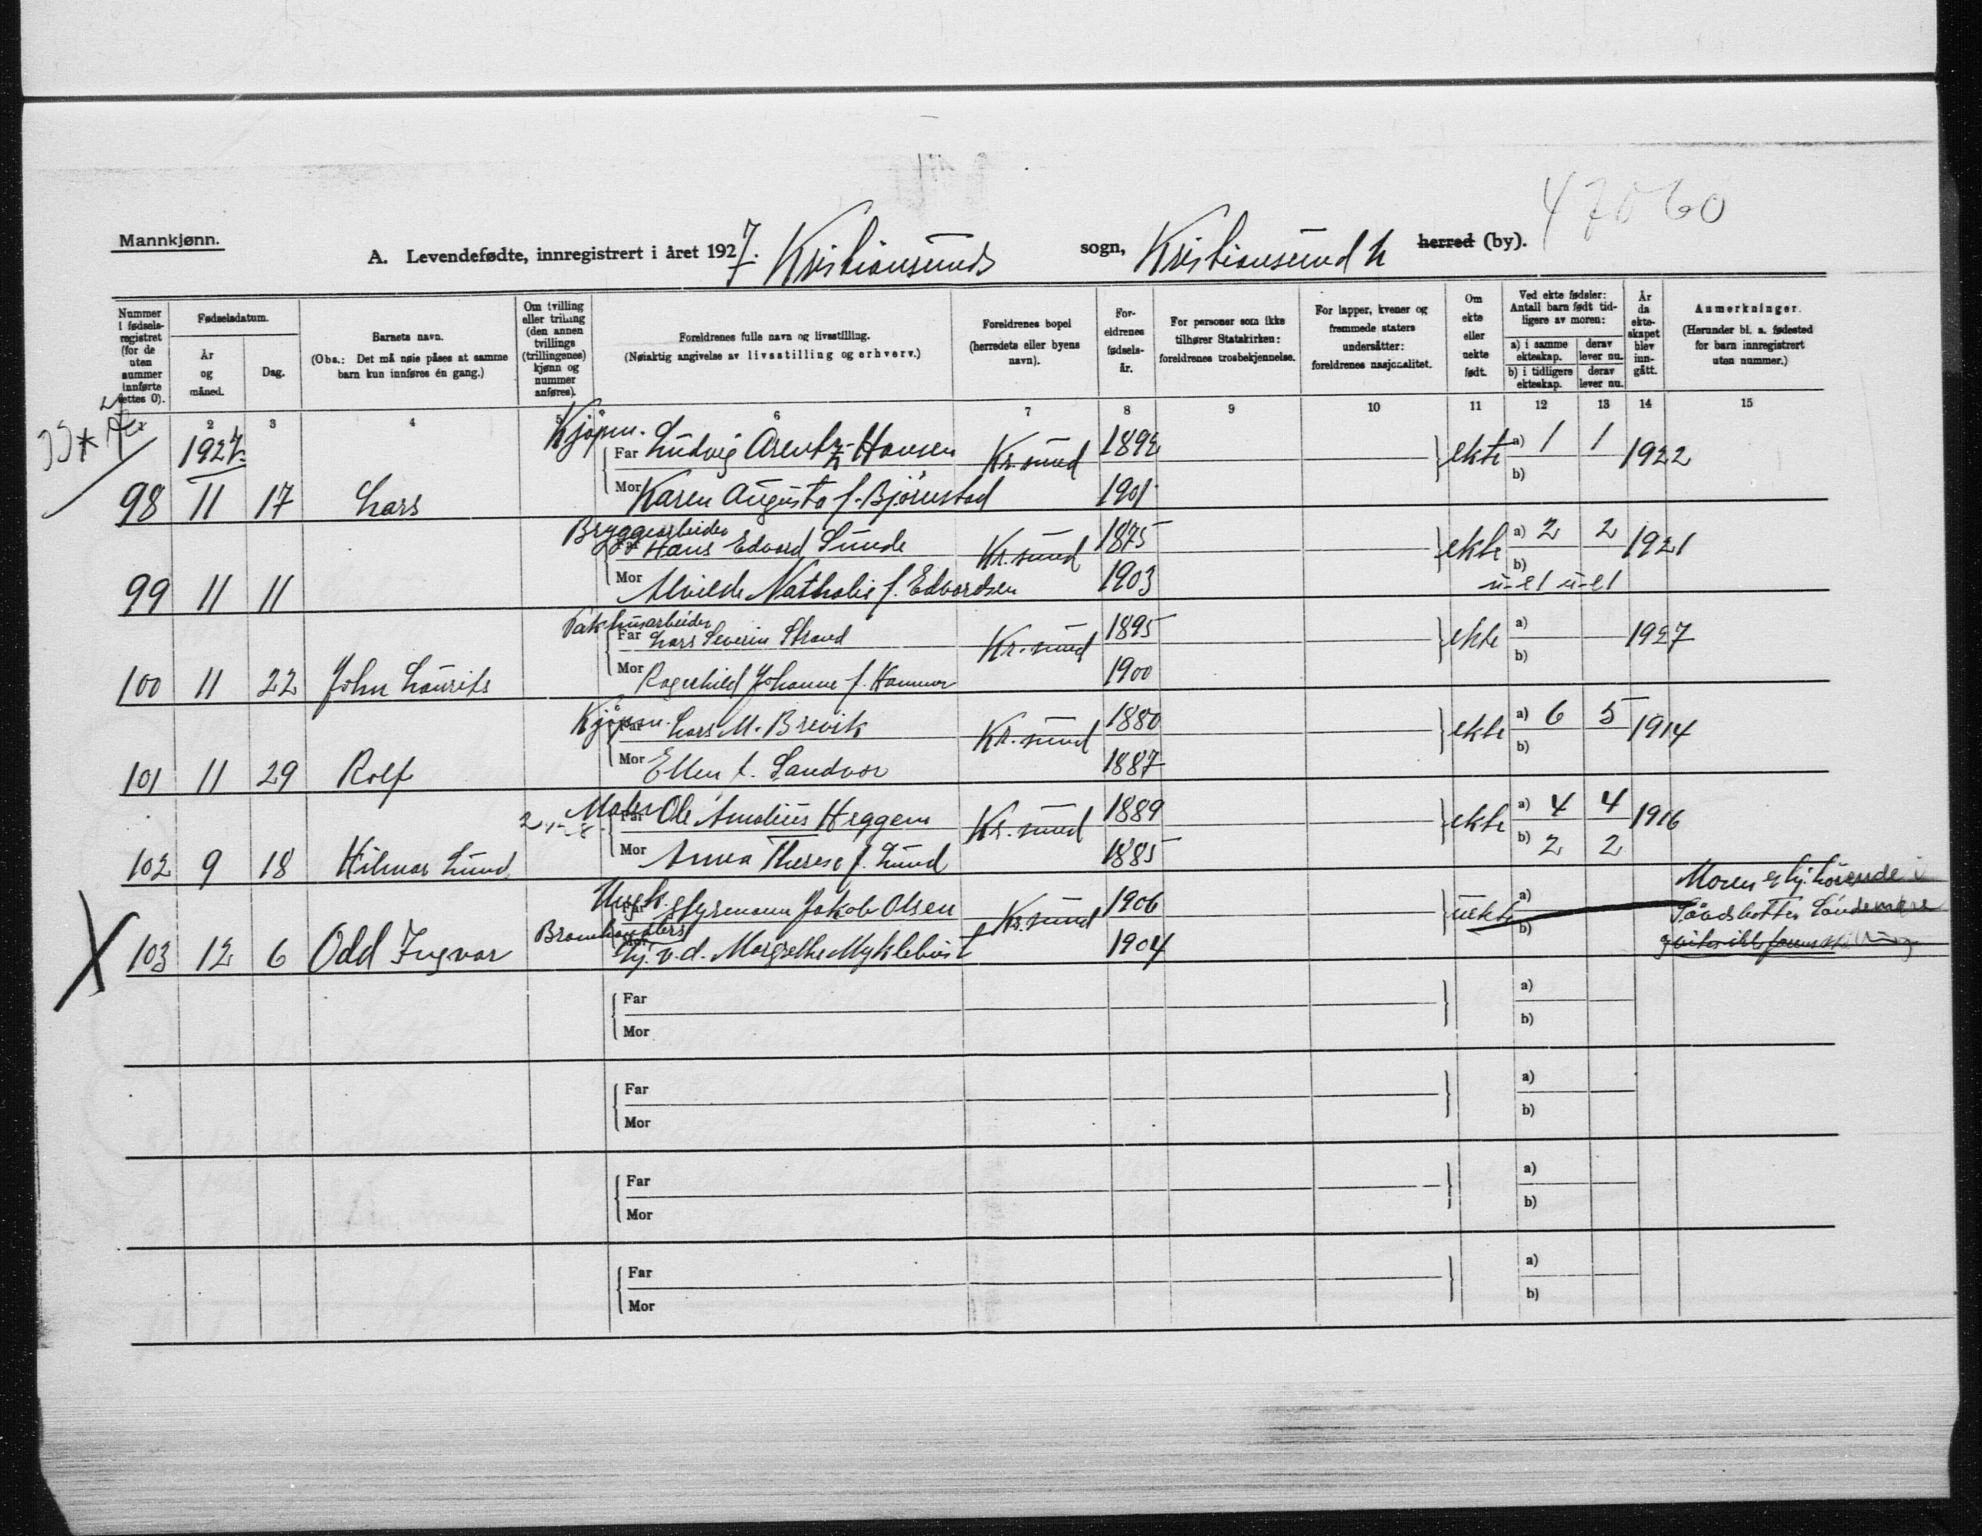 47060
Mannkjønn.
A. Levendefødte, innregistrert i året 1927. Kristiansunds sogn, Kristiansund N herred (by).
Nummer i fødsels-registret (for de uten nummer innførte settes 0).
Fødselsdatum.
År og måned.
Dag.
Barnets navn.
(Obs.: Det må nøie påses at samme barn kun innføres én gang.)
Om tvilling eller trilling (den annen tvillings (trillingenes) kjønn og nummer anføres).
Foreldrenes fulle navn og livsstilling.
(Nøiaktig angivelse av livsstilling og erhverv.)
Foreldrenes bopel (herredets eller byens navn).
For-eldrenes fødsels-år.
For personer som ikke tilhører Statskirken: foreldrenes trosbekjennelse.
For lapper, kvener og fremmede staters undersåtter: foreldrenes nasjonalitet.
Om ekte eller uekte født.
Ved ekte fødsler: Antall barn født tid-ligere av moren:
a) i samme ekteskap.
derav lever nu.
b) i tidligere ekteskap.
derav lever nu.
År da ekte-skapet blev inn-gått.
Anmerkninger.
(Herunder bl. a. fødested for barn innregistrert uten nummer.)
2 3 4 5 6 7 8 9 10 11 12 13 14 15
1927.
Kjøpm.
Far Ludvig Arentz-Hansen Kr.sund 1892 ekte a) 1 1 1922
98 11 17 Lars Mor Karen Augusta f. Bjørnstad 1901 b)
Bryggearbeider
Far Hans Edvard Sunde Kr.sund 1875 ekte a) 2 2 1921
99 11 11 Mor Alvilde Nathalie f. Edvardsen 1903 b)
Pakhusarbeider
Far Lars Severin Strand Kr.sund 1895 ekte a) 1927
100 11 22 John Laurits Mor Ragnhild Johanne f. Hammer 1900 b)
Kjøpm.
Far Lars M. Brevik Kr.sund 1880 ekte a) 6 5 1914
101 11 29 Rolf Mor Ellen f. Sandvor 1887 b)
Maler
Far Ole Amalius Heggem Kr.sund 1889 ekte a) 4 4 1916
102 9 18 Hilmar Lund Mor Anna Therese f. Lund 1885 b) 2 2
Ungk. styrmann Jakob Olsen Kr.sund 1906 uekte a) Moren er hj.hörende i
103 12 6 Odd Ingvar Mor v.d. Margrethe Myklebust 1904 b)
Far a)
Mor b)
Far a)
Mor b)
Far a)
Mor b)
Far a)
Mor b)